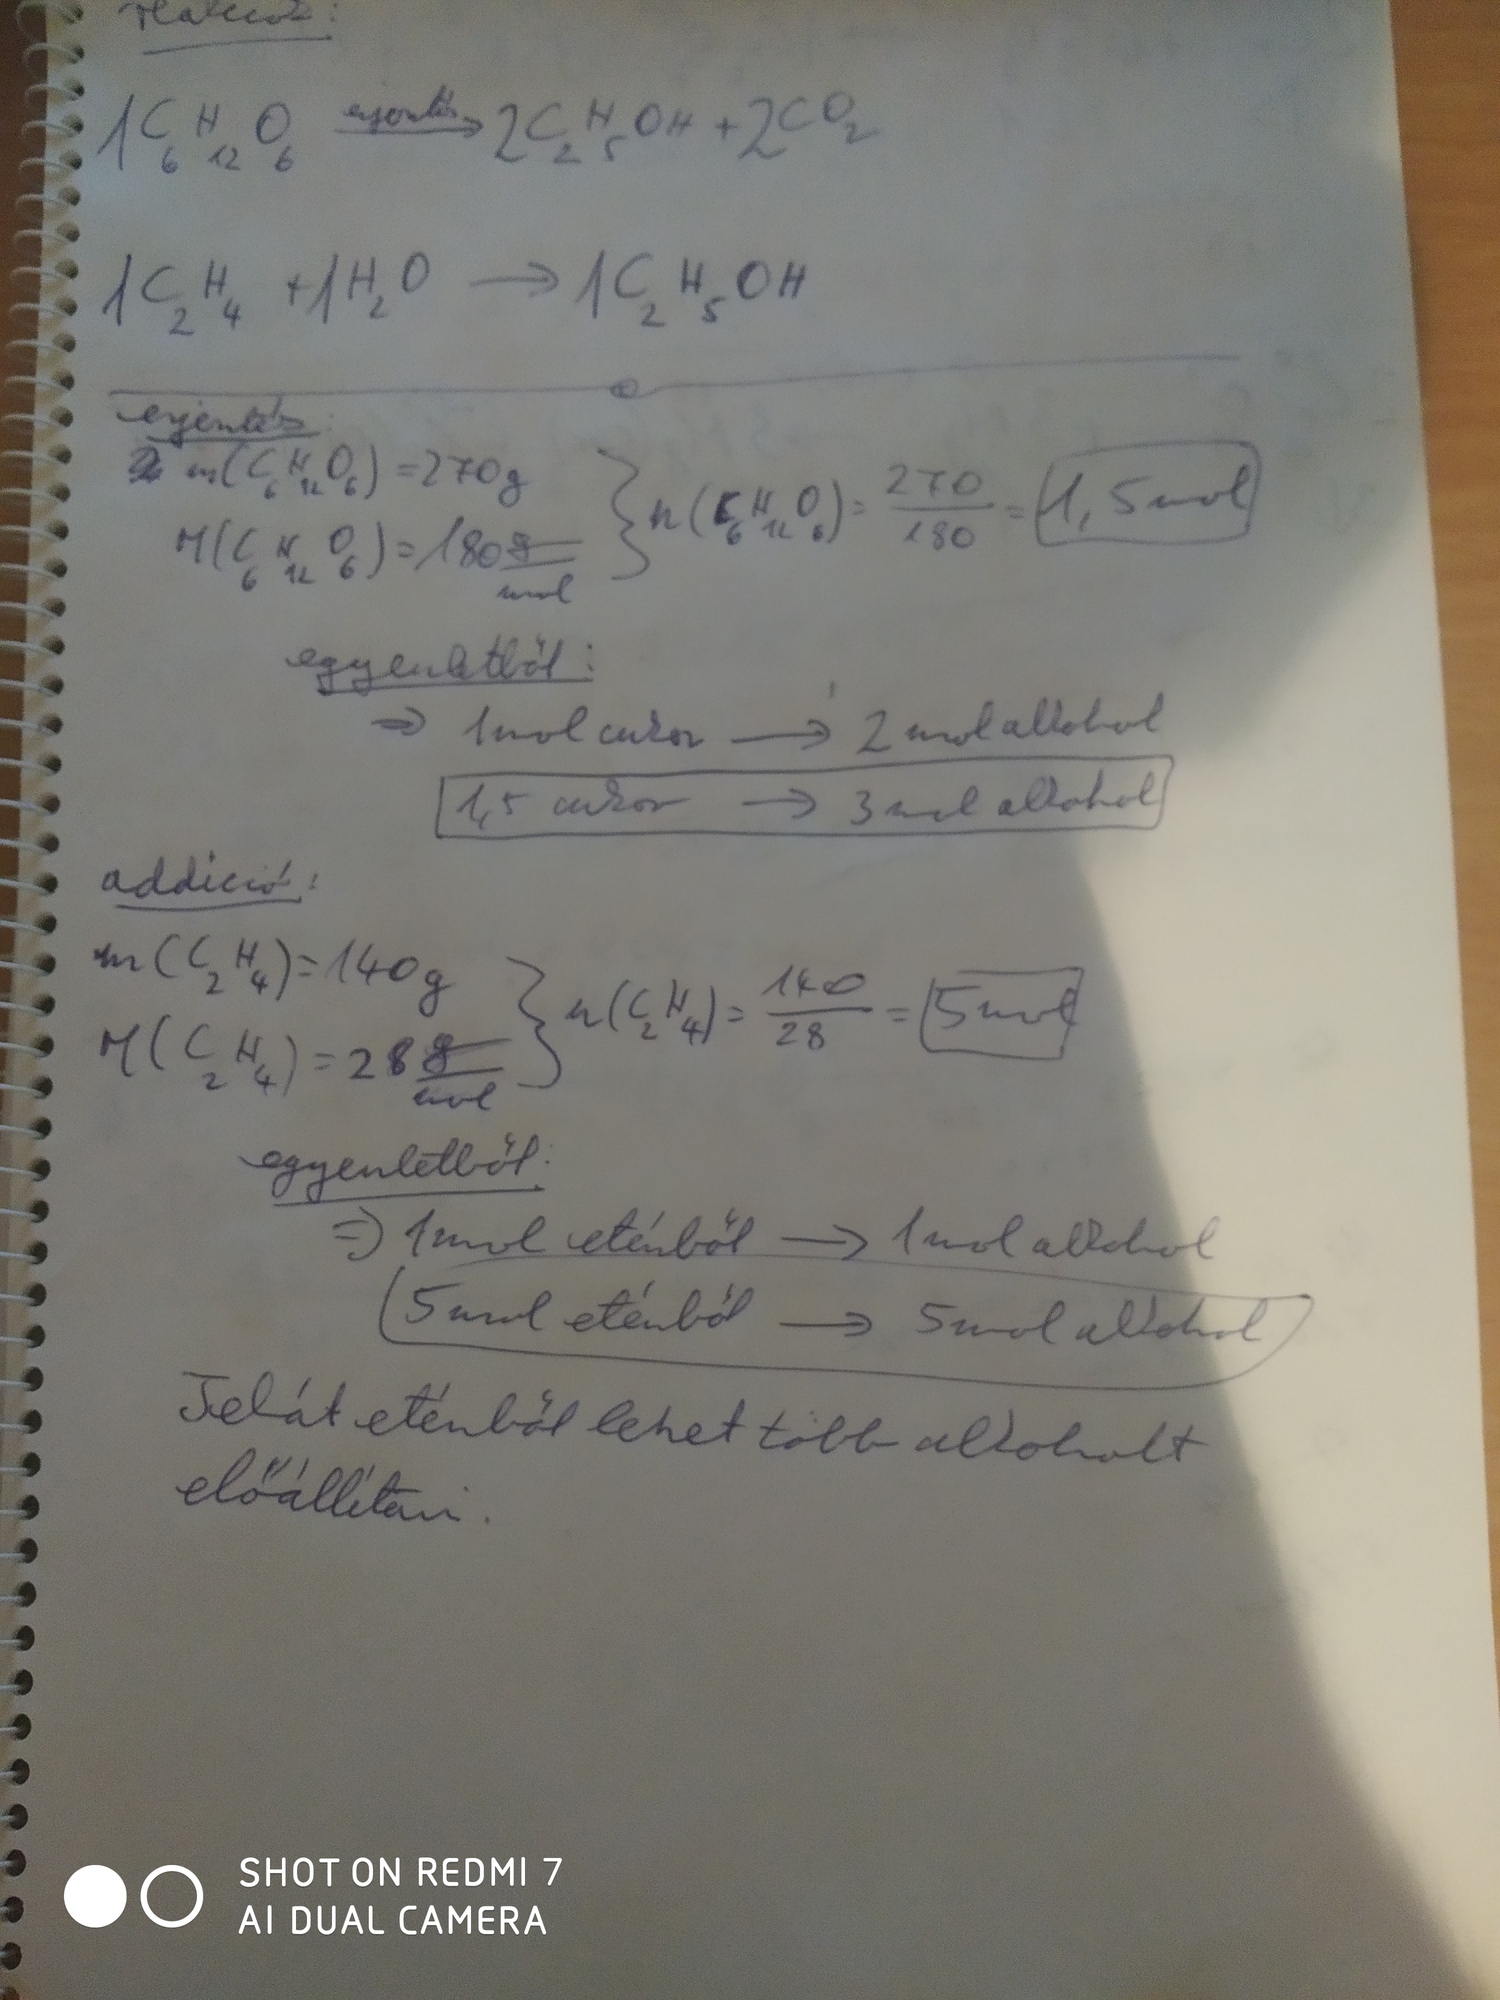 Reakciók:
1C₆H₁₂O₆ erjentés→ 2C₂H₅OH + 2CO₂
1C₂H₄ + 1H₂O → 1C₂H₅OH
erjentés:
m(C₆H₁₂O₆) = 270g
M(C₆H₁₂O₆) = 180 g/mol } n(C₆H₁₂O₆) = 270/180 = 1,5mol
egyenletből:
⇒ 1mol cukor → 2 mol alkohol
1,5 cukor → 3 mol alkohol
addíció:
m(C₂H₄) = 140g
M(C₂H₄) = 28 g/mol } n(C₂H₄) = 140/28 = 5mol
egyenletből:
⇒ 1mol eténből → 1mol alkohol
5mol eténből → 5mol alkohol
Tehát eténből lehet több alkoholt
előállítani.
SHOT ON REDMI 7
AI DUAL CAMERA